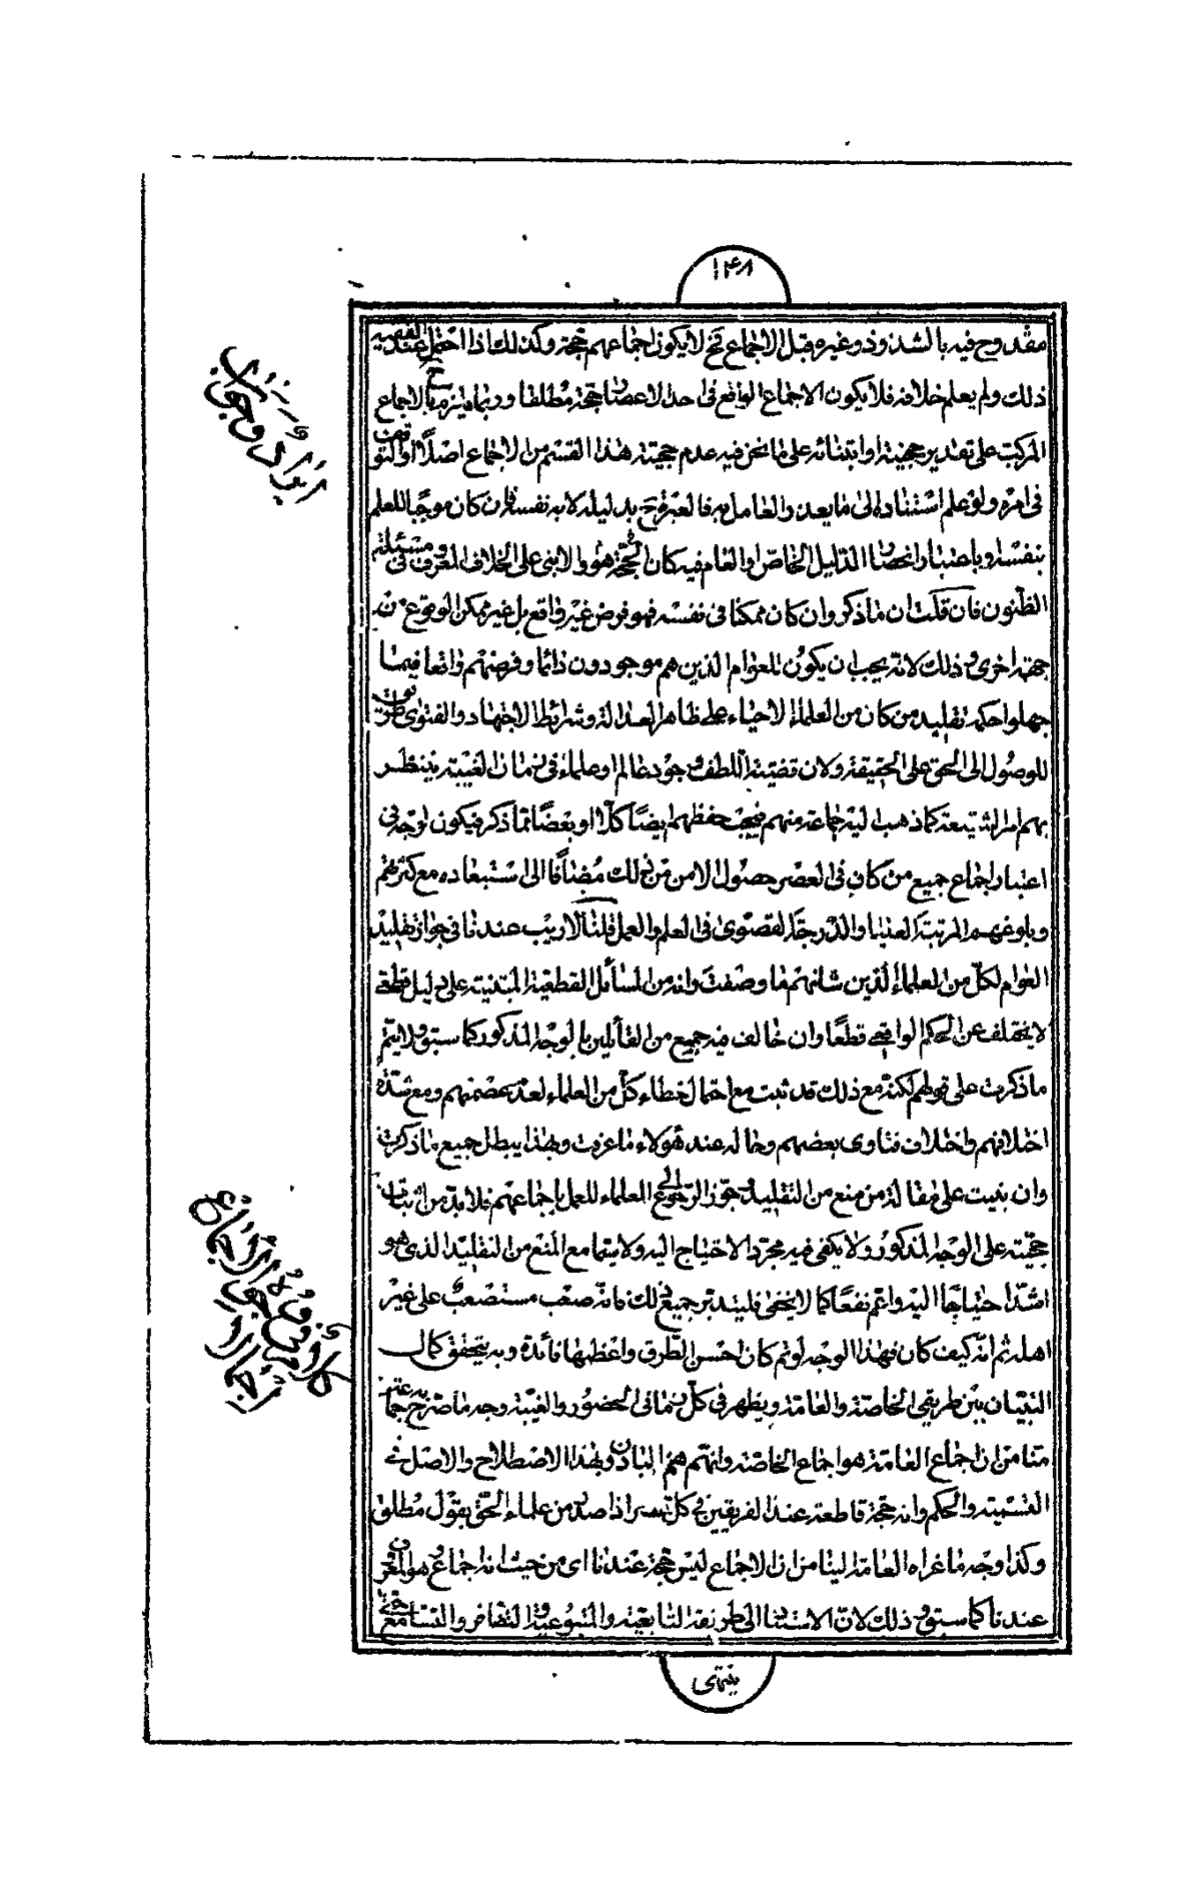 ١٤٨
مقدوح فيه بالشذوذ وغيره قبل الاجماع فح لا يكون اجماعهم حجة وكذلك اذا احتمل عند الفقيه
ذلك ولم يعلم خلافه فلا يكون الاجماع الواقع في احد الاعصار حجة مطلقا وربما يلزم ح بالاجماع
المركب على تقدير حجيته او ابتنائه على ما نحن فيه عدم حجية هذا القسم من الاجماع اصلا او التوقف
في امره ولو علم استناده الى ما يعذر العامل به فالعبرة ح بدليله لا به نفسه فان كان موجبا للعلم
بنفسه او باعتبار انحصار الدليل الخاص او العام فيه كان الحجة هو والا بنى على الخلاف المعروف في مسئلة
الظنون فان قلت ان ما ذكر وان كان ممكنا في نفسه فهو فرض غير واقع بل غير ممكن الوقوع من
جهة اخرى وذلك لانه يجب ان يكون للعوام الذين هم موجودون دائما وفرضهم واقعا فيما
جهلوا حكمه تقليد من كان من العلماء الاحياء على ظاهر العدالة وشرائط الاجتهاد والفتوى طريق
للوصول الى الحق على الحقيقة ولان قضية اللطف وجود عالم او علماء في زمان الغيبة ينتظر
بهم امر الشيعة كما ذهب اليه جماعة منهم فيجب حفظهم ايضا كلا او بعضا مما ذكر فيكون الوجه في
اعتبار اجماع جميع من كان في العصر حصول الامن من ذلك مضافا الى استبعاده مع كثرتهم
وبلوغهم المرتبة العليا والدرجة القصوى في العلم والعمل قلنا لا ريب عندنا في جواز تقليد
العوام لكل من العلماء الذين شانهم ما وصفت وانه من المسائل القطعية المبتنية على دليل قطعي
لا يتخلف عن الحكم الواقعي قطعا وان خالف فيه جميع من القائلين بالوجه المذكور كما سبق ولا يتم
ما ذكرت على قولهم لكنه مع ذلك قد ثبت مع احتمال خطاء كل من العلماء لعدم عصمتهم ومع شدة
اختلافهم واختلاف فتاوى بعضهم وحاله عند هؤلاء ما عرفت وبهذا يبطل جميع ما ذكرت
وان بنيت على مقالة من منع من التقليد وجوز الرجوع الى العلماء للعمل باجماعهم فلا بد من اثبات
حجيته على الوجه المذكور ولا يكفي فيه مجرد الاحتياج اليه ولا سيما مع المنع من التقليد الذي هو
اشد احتياجا اليه واعم نفعا كما لا يخفى فليتدبر جميع ذلك فانه صعب مستصعب على غير
اهله ثم انه كيف كان فهذا الوجه لو تم كان احسن الطرق واعظمها فائدة وبه يتحقق كمال
التبيان بين طريقي الخاصة والعامة ويظهر في كل زماني الحضور والغيبة وجه ما صرح به جماعة
منا من ان اجماع العامة هو اجماع الخاصة وانهم هم البادون بهذا الاصطلاح والاصل في
التسمية والحكم وانه حجة قاطعة عند الفريقين في كل عصر اذا صدر من علماء الحق بقول مطلق
وكذا وجه ما عزاه العامة الينا من ان الاجماع ليس حجة عندنا اي من حيث انه اجماع وهو المعروف
عندنا كما سبق وذلك لان الاستناد الى طريقة التابعية والمتبوعية والتظافر والتسامع حتى
ينتهى
ايراد وجواب